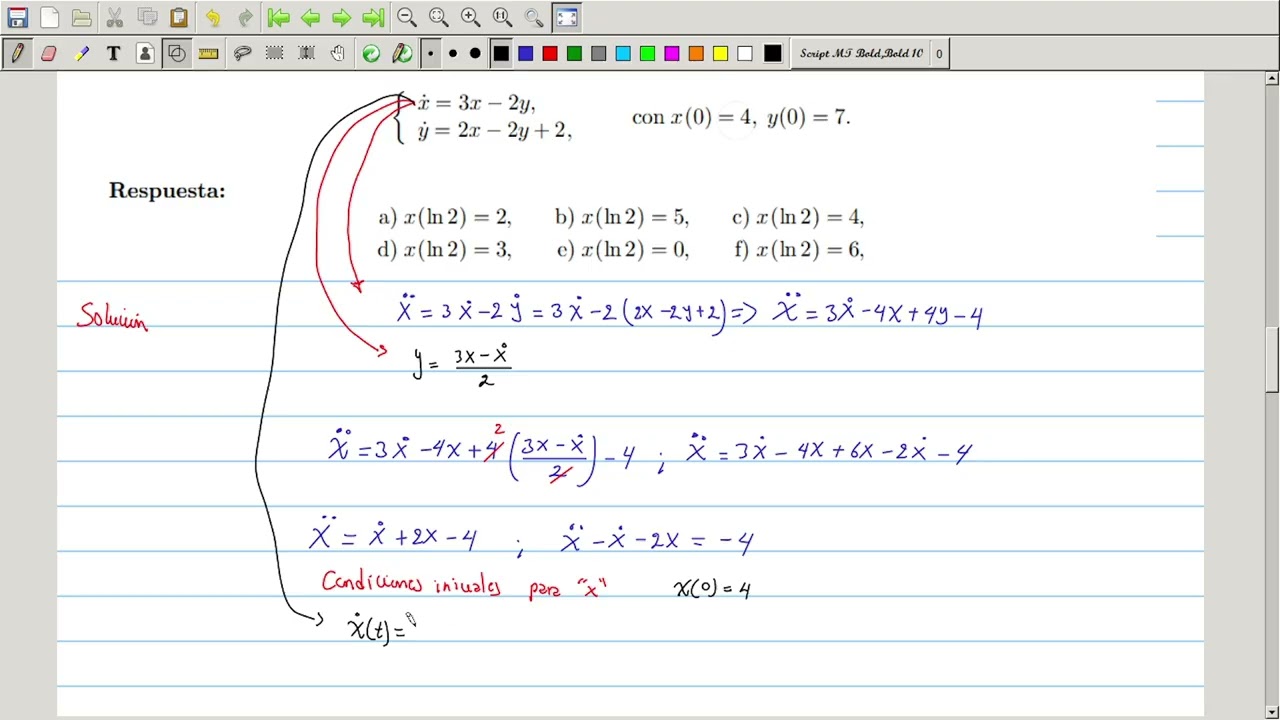 T
Script MT Bold,Bold 10
0
ẋ = 3x − 2y,
ẏ = 2x − 2y + 2,
con x(0) = 4, y(0) = 7.
Respuesta:
a) x(ln 2) = 2, b) x(ln 2) = 5, c) x(ln 2) = 4,
d) x(ln 2) = 3, e) x(ln 2) = 0, f) x(ln 2) = 6,
Solución
ẍ = 3ẋ − 2ẏ = 3ẋ − 2(2x − 2y + 2) => ẍ = 3ẋ − 4x + 4y − 4
y = (3x − ẋ)/2
2
ẍ = 3ẋ − 4x + 4((3x − ẋ)/2) − 4 ; ẍ = 3ẋ − 4x + 6x − 2ẋ − 4
ẍ = ẋ + 2x − 4 ; ẍ − ẋ − 2x = −4
Condiciones iniciales para "x" x(0) = 4
ẋ(t) =